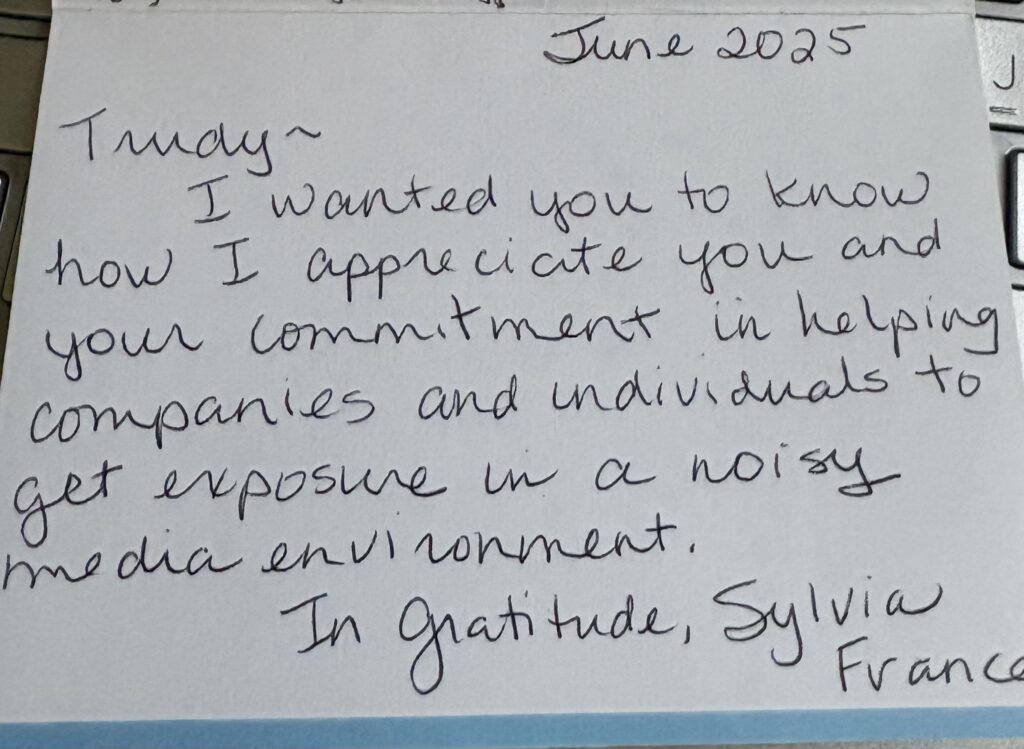 June 2025
Trudy~
I wanted you to know
how I appreciate you and
your commitment in helping
companies and individuals to
get exposure in a noisy
media environment.
In Gratitude, Sylvia
France
J